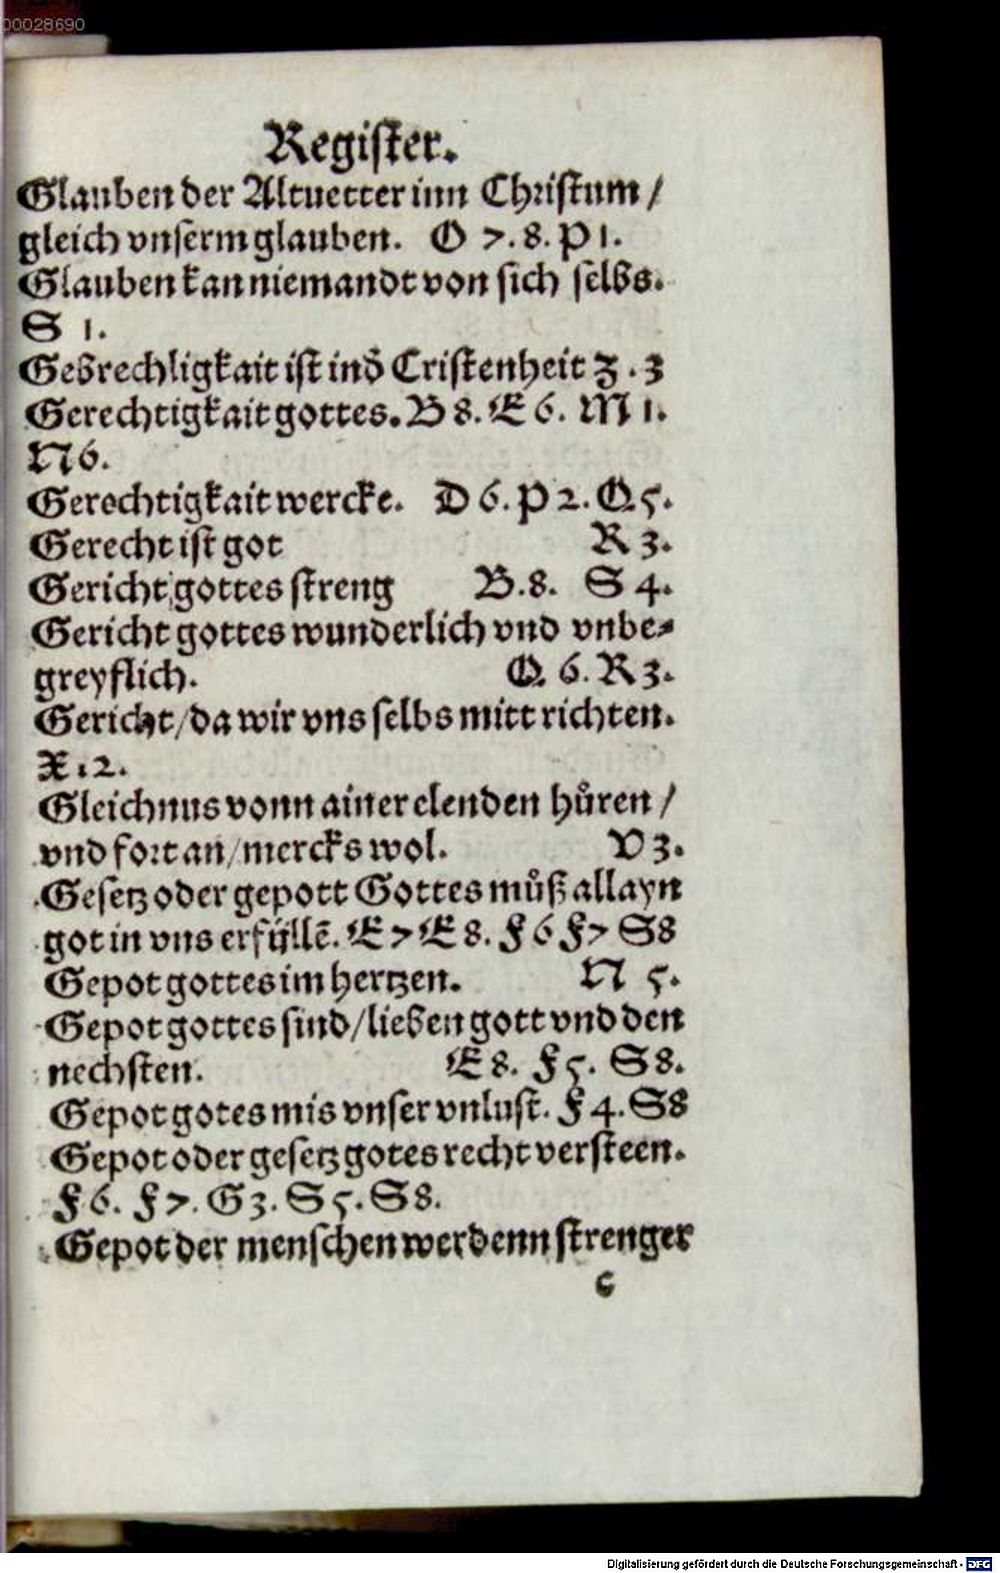 00028690
Register.
Glauben der Altuetter inn Christum /
gleich vnserm glauben. O 7. 8. P 1.
Glauben kan niemandt von sich selbs.
S 1.
Gebrechligkait ist in d̄ Cristenheit Z . 3
Gerechtigkait gottes. B 8. E 6. M 1.
N 6.
Gerechtigkait wercke. D 6. P 2. Q 5.
Gerecht ist got R 3.
Gericht gottes streng B. 8. S 4.
Gericht gottes wunderlich vnd vnbe⸗
greyflich. Q. 6. R 3.
Gericht / da wir vns selbs mitt richten.
X 12.
Gleichnus vonn ainer elenden hůren /
vnd fort an / mercks wol. V 3.
Gesetz oder gepott Gottes můß allayn
got in vns erfüllē. E 7 E 8. F 6 F 7 S 8
Gepot gottes im hertzen. N 5.
Gepot gottes sind / lieben gott vnd den
nechsten. E 8. F 5. S 8.
Gepot gotes mis vnser vnlust. F 4. S 8
Gepot oder gesetz gotes recht versteen.
F 6. F 7. G 3. S 5. S 8.
Gepot der menschen werdenn strenger
c
Digitalisierung gefördert durch die Deutsche Forschungsgemeinschaft - DFG